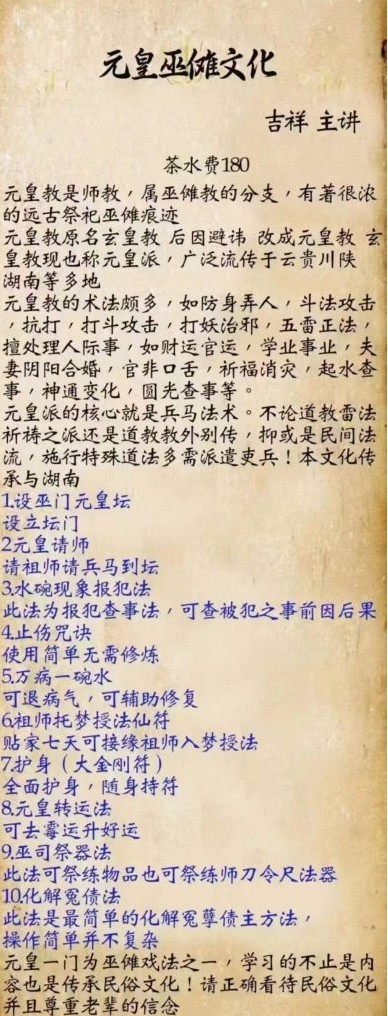 元皇巫傩文化
吉祥 主讲
茶水费180
元皇教是师教，属巫傩教的分支，有著很浓
的远古祭祀巫傩痕迹
元皇教原名玄皇教 后因避讳 改成元皇教 玄
皇教现也称元皇派，广泛流传于云贵川陕
湖南等多地
元皇教的术法颇多，如防身弄人，斗法攻击
，抗打，打斗攻击，打妖治邪，五雷正法，
擅处理人际事，如财运官运，学业事业，夫
妻阴阳合婚，官非口舌，祈福消灾，起水查
事，神通变化，圆光查事等。
元皇派的核心就是兵马法术。不论道教雷法
祈祷之派还是道教教外别传，抑或是民间法
流，施行特殊道法多需派遣吏兵！本文化传
承与湖南
1.设巫门元皇坛
设立坛门
2元皇请师
请祖师请兵马到坛
3.水碗现象报犯法
此法为报犯查事法，可查被犯之事前因后果
4.止伤咒诀
使用简单无需修炼
5.万病一碗水
可退病气，可辅助修复
6.祖师托梦授法仙符
贴家七天可接缘祖师入梦授法
7.护身（大金刚符）
全面护身，随身持符
8.元皇转运法
可去霉运升好运
9.巫司祭器法
此法可祭练物品也可祭练师刀令尺法器
10.化解冤债法
此法是最简单的化解冤孽债主方法，
操作简单并不复杂
元皇一门为巫傩戏法之一，学习的不止是内
容也是传承民俗文化！请正确看待民俗文化
并且尊重老辈的信念